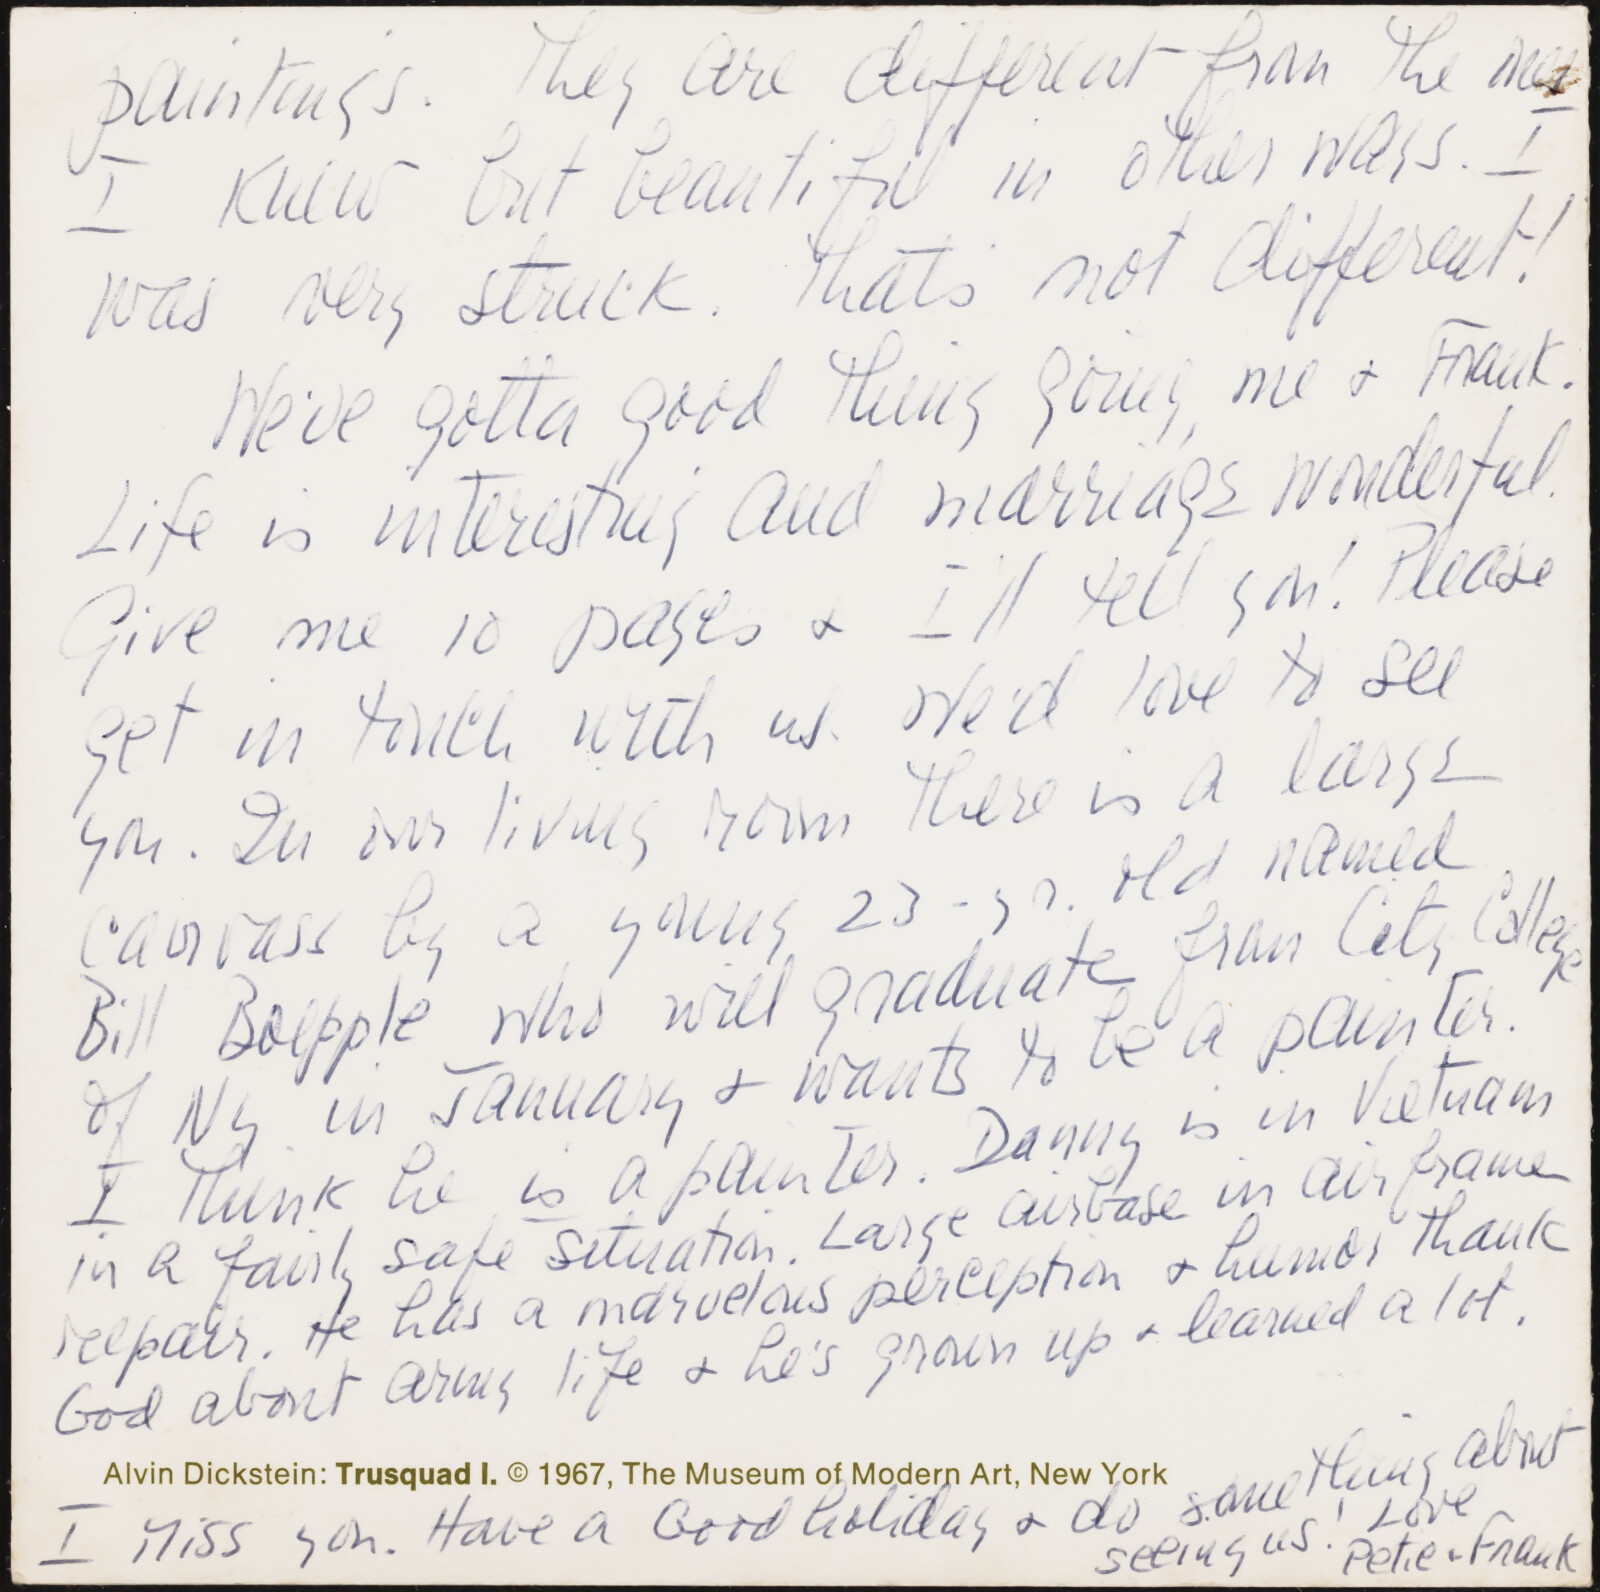 paintings. They are different from the ones
I knew but beautiful in other ways. I
was very struck. That's not different!
We've gotta good thing going, me & Frank.
Life is interesting and marriage wonderful.
Give me 10 pages & I'll tell you! Please
get in touch with us. We'd love to see
you. In our living room there is a large
canvass by a young 23-yr. old named
Bill Boepple who will graduate from City College
of Ny in January & wants to be a painter.
I think he is a painter. Danny is in Vietnam
in a fairly safe situation. Large airbase in air frame
reepair. He has a marvelous perception & humor thank
God about army life & he's grown up & learned a lot.
Alvin Dickstein: Trusquad I. © 1967, The Museum of Modern Art, New York
I miss you. Have a Good holiday & do something about
seeing us! Love
Petie & Frank